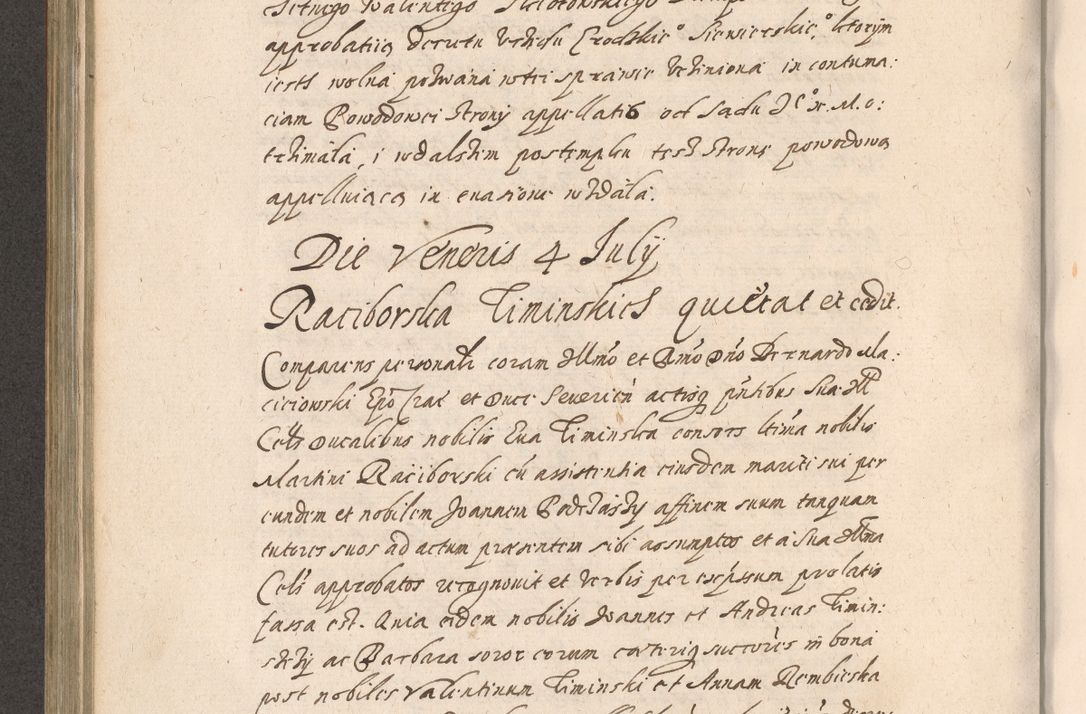 approbatiią decretu Urzędu Grodzkie° Siewierskie,° ktorym
iest wolna pozwana w tei sprawie Uciniona in contuma:
ciam Powodowei Strony appellatio od Sadu Je° x. M. o:
trzimała, i w dalszem postempku tesz Strone powodową
appelluiącą in euasione wzdała.
Die Veneris 4 July
Raciborska Timinskich quietat et cedit.
Comparens personalr coram Illmo et Rmo Dno Bernardo Ma:
cieiowski Epo Crac et Duce Severien actisq pntibus Suae Ill
Cels Ducalibus nobilis Eva Timinska consors ltima nobilis
Martini Raciborski cu assistentia eiusdem mariti sui per
eundem et nobilem Joannem Podczaszy affinem suum tanquam
tutores suos ad actum praesentem sibi assumptos et a Sua Illma
Cels approbatos recognovit et verbis per expssum prolatis
fassa est. Quia eidem nobilis Joannes et Andreas Timin:
szczy ac Barbara soror eorum caeteriq succores in bona
post nobiles Valentinum Timinski et Annam Rembieska